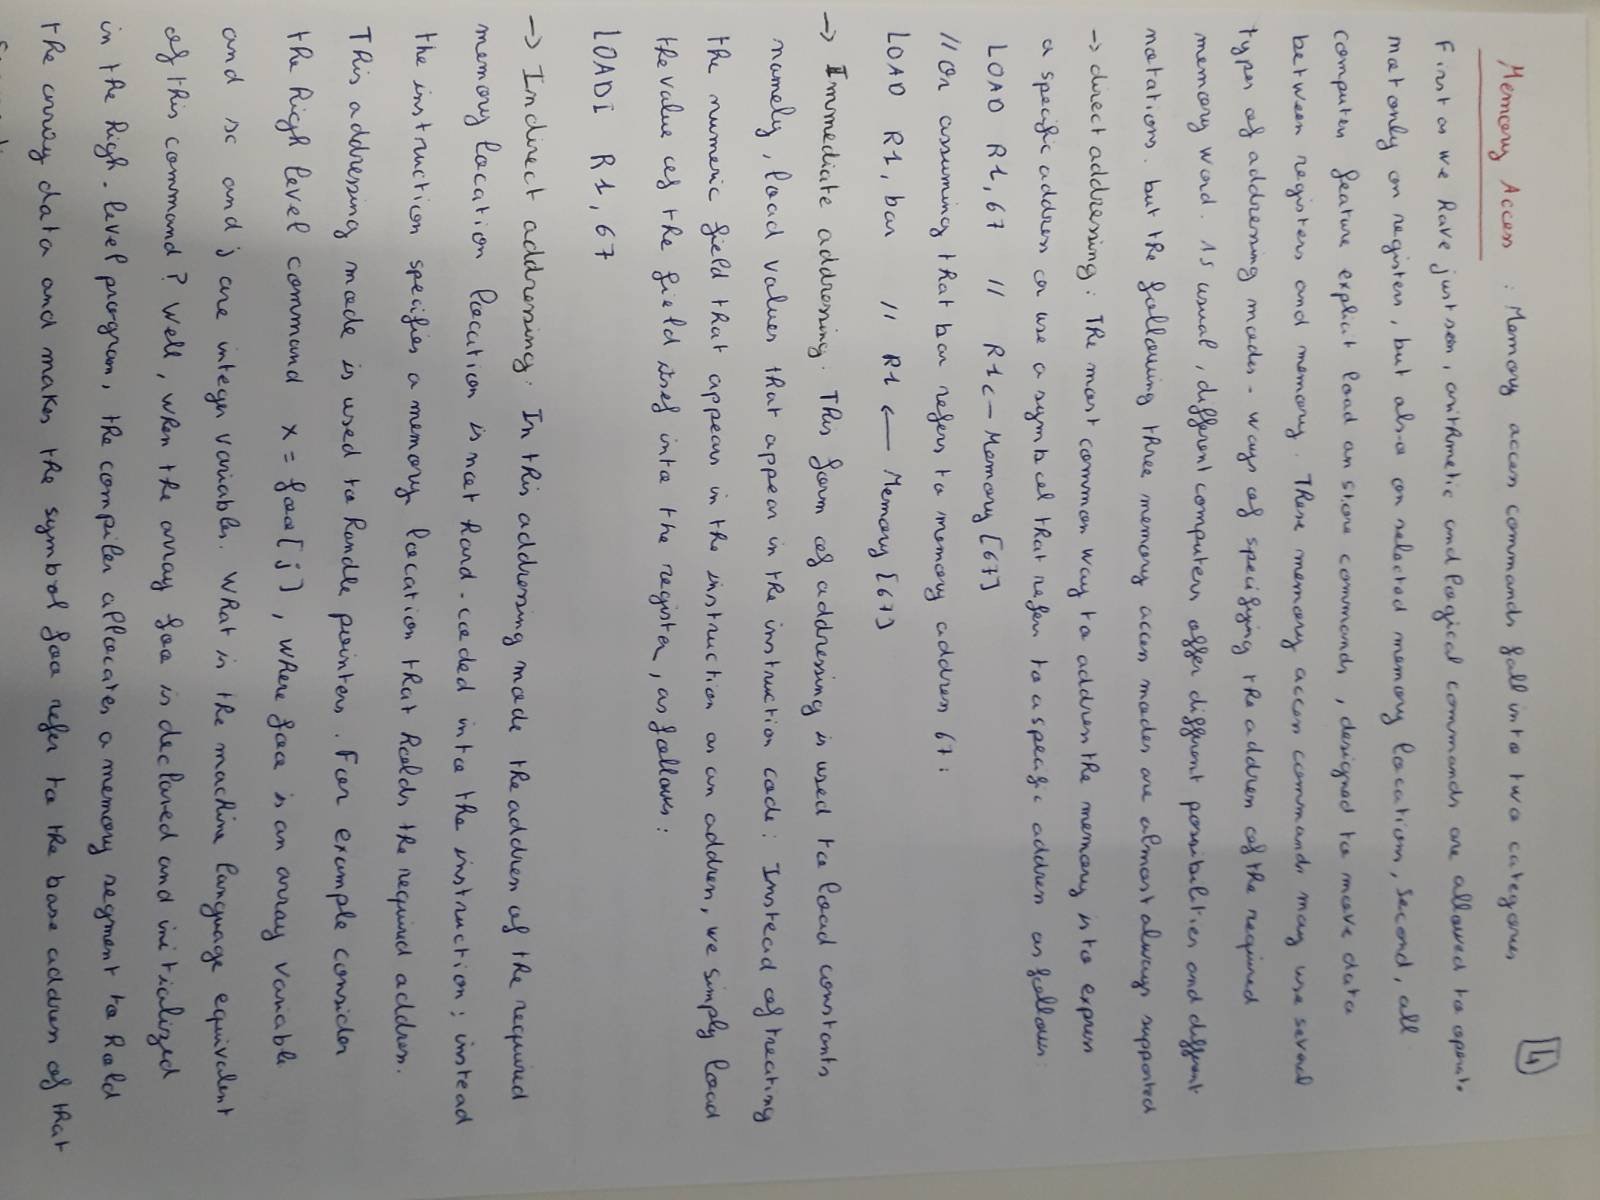 4
Memory Access : Memory access commands fall into two categories
First as we have just seen, arithmetic and logical commands are allowed to operate
not only on registers, but also on selected memory locations, second, all
computers feature explicit load an store commands, designed to move data
between registers and memory. These memory access commands may use several
types of addressing modes - ways of specifying the address of the required
memory word. As usual, different computers offer different possibilities and different
notations. but the following three memory access modes are almost always supported
-> direct addressing : The most common way to address the memory is to express
a specific address or use a symbol that refers to a specific address as follows :
LOAD R1, 67 // R1 <- Memory [67]
// Or assuming that bar refers to memory address 67 :
LOAD R1, bar // R1 <- Memory [67]
-> Immediate addressing : This form of addressing is used to load constants
namely, load values that appear in the instruction code : Instead of treating
the numeric field that appears in the instruction as an address, we simply load
the value of the field itself into the register, as follows :
LOADI R1, 67
-> Indirect addressing : In this addressing mode the address of the required
memory location location is not hard-coded into the instruction ; instead
the instruction specifies a memory location that holds the required address.
This addressing mode is used to handle pointers. For example consider
the high level command x = foo[j], where foo is an array variable
and x and j are integer variables. What is the machine language equivalent
of this command ? Well, when the array foo is declared and initialized
in the high-level program, the compiler allocates a memory segment to hold
the array data and makes the symbol foo refer to the base address of that